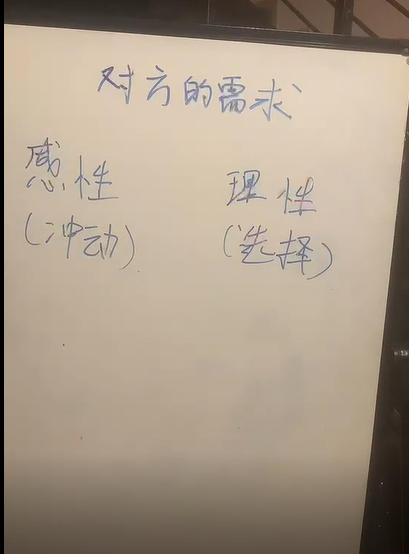 对方的需求
感性 理性
(冲动) (选择)